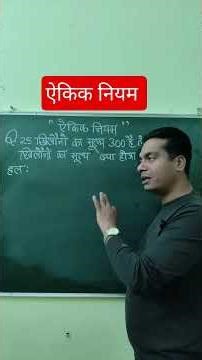 ऐकिक नियम
" ऐकिक नियम "
Q. 25 खिलौनो का मूल्य 300 है
खिलौनों का मूल्य क्या होगा
हल :